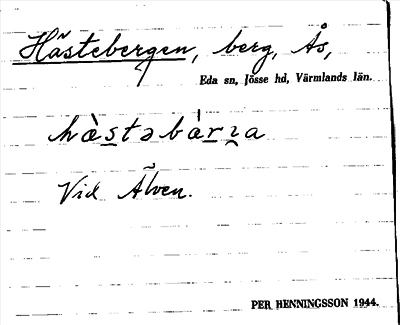 Hästebergen, berg, Ås,
Eda sn, Jösse hd, Värmlands län.
hàstəbárɿa
Vid Älven.
PER HENNINGSSON 1944.